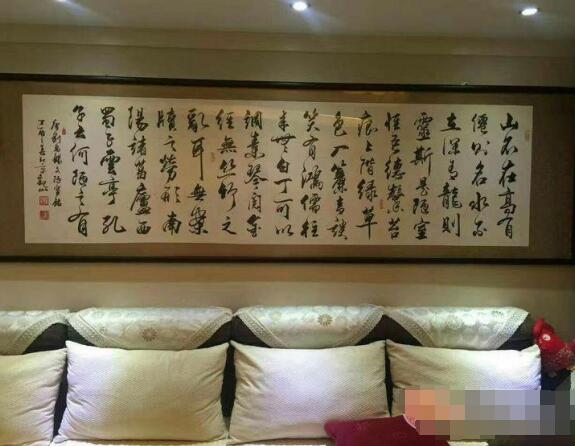 山不在高有
僊則名水不
在深有龍則
靈斯是陋室
惟吾德馨苔
痕上階綠草
色入簾青談
笑有鴻儒往
來無白丁可以
調素琴閱金
經無絲竹之
亂耳無案
牘之勞形南
陽諸葛廬西
蜀子雲亭孔
子云何陋之有
唐劉禹錫陋室銘
丁酉